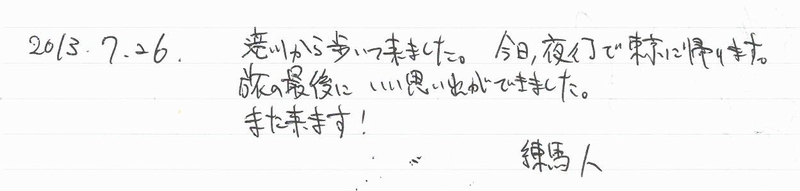 2013.7.26. から歩いて来ました。 今日,夜行で東京に帰ります。
旅の最後に いい思い出ができました。
また来ます！
練馬人